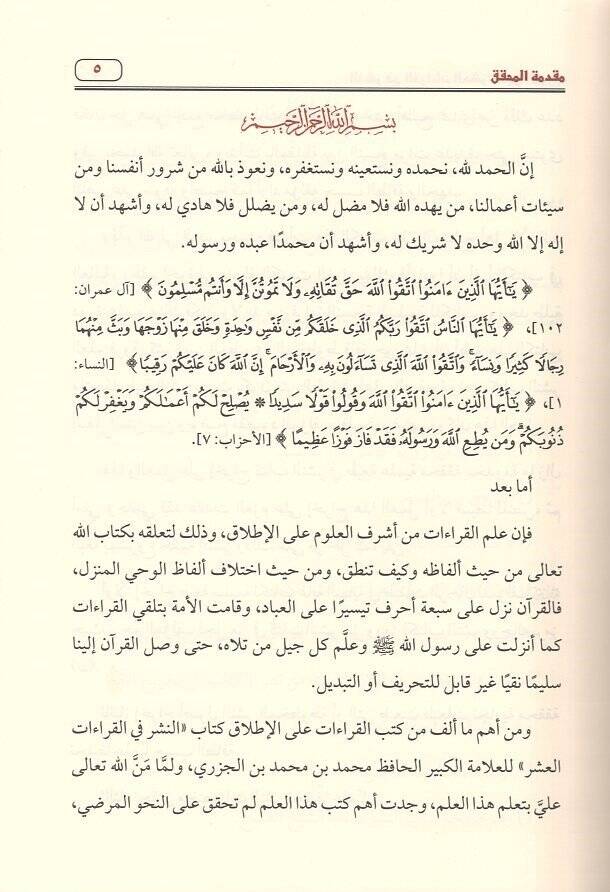 مقدمة المحقق
٥
بسم الله الرحمن الرحيم
إنَّ الحمد لله، نحمده ونستعينه ونستغفره، ونعوذ بالله من شرور أنفسنا ومن
سيئات أعمالنا، من يهده الله فلا مضل له، ومن يضلل فلا هادي له، وأشهد أن لا
إله إلا الله وحده لا شريك له، وأشهد أن محمدًا عبده ورسوله.
﴿ يَٰٓأَيُّهَا ٱلَّذِينَ ءَامَنُوا۟ ٱتَّقُوا۟ ٱللَّهَ حَقَّ تُقَاتِهِۦ وَلَا تَمُوتُنَّ إِلَّا وَأَنتُم مُّسْلِمُونَ ﴾ [آل عمران:
١٠٢]، ﴿ يَٰٓأَيُّهَا ٱلنَّاسُ ٱتَّقُوا۟ رَبَّكُمُ ٱلَّذِى خَلَقَكُم مِّن نَّفْسٍ وَٰحِدَةٍ وَخَلَقَ مِنْهَا زَوْجَهَا وَبَثَّ مِنْهُمَا
رِجَالًا كَثِيرًا وَنِسَآءً ۚ وَٱتَّقُوا۟ ٱللَّهَ ٱلَّذِى تَسَآءَلُونَ بِهِۦ وَٱلْأَرْحَامَ ۚ إِنَّ ٱللَّهَ كَانَ عَلَيْكُمْ رَقِيبًا ﴾ [النساء:
١]، ﴿ يَٰٓأَيُّهَا ٱلَّذِينَ ءَامَنُوا۟ ٱتَّقُوا۟ ٱللَّهَ وَقُولُوا۟ قَوْلًا سَدِيدًا * يُصْلِحْ لَكُمْ أَعْمَٰلَكُمْ وَيَغْفِرْ لَكُمْ
ذُنُوبَكُمْ ۗ وَمَن يُطِعِ ٱللَّهَ وَرَسُولَهُۥ فَقَدْ فَازَ فَوْزًا عَظِيمًا ﴾ [الأحزاب: ٧].
أما بعد
فإن علم القراءات من أشرف العلوم على الإطلاق، وذلك لتعلقه بكتاب الله
تعالى من حيث ألفاظه وكيف تنطق، ومن حيث اختلاف ألفاظ الوحي المنزل،
فالقرآن نزل على سبعة أحرف تيسيرًا على العباد، وقامت الأمة بتلقي القراءات
كما أنزلت على رسول الله ﷺ وعلَّم كل جيل من تلاه، حتى وصل القرآن إلينا
سليمًا نقيًا غير قابل للتحريف أو التبديل.
ومن أهم ما ألف من كتب القراءات على الإطلاق كتاب «النشر في القراءات
العشر» للعلامة الكبير الحافظ محمد بن محمد بن الجزري، ولمَّا مَنَّ الله تعالى
عليَّ بتعلم هذا العلم، وجدت أهم كتب هذا العلم لم تحقق على النحو المرضي،